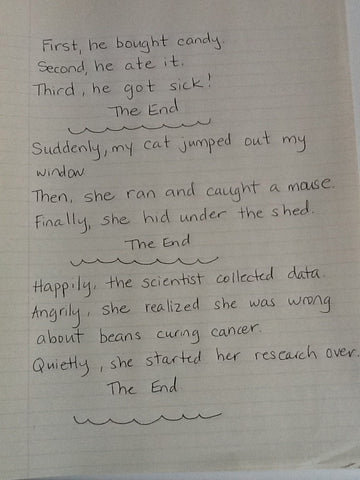 First, he bought candy.
Second, he ate it.
Third, he got sick!
The End
Suddenly, my cat jumped out my
window
Then, she ran and caught a mouse.
Finally, she hid under the shed.
The End
Happily, the scientist collected data.
Angrily, she realized she was wrong
about beans curing cancer.
Quietly, she started her research over.
The End.